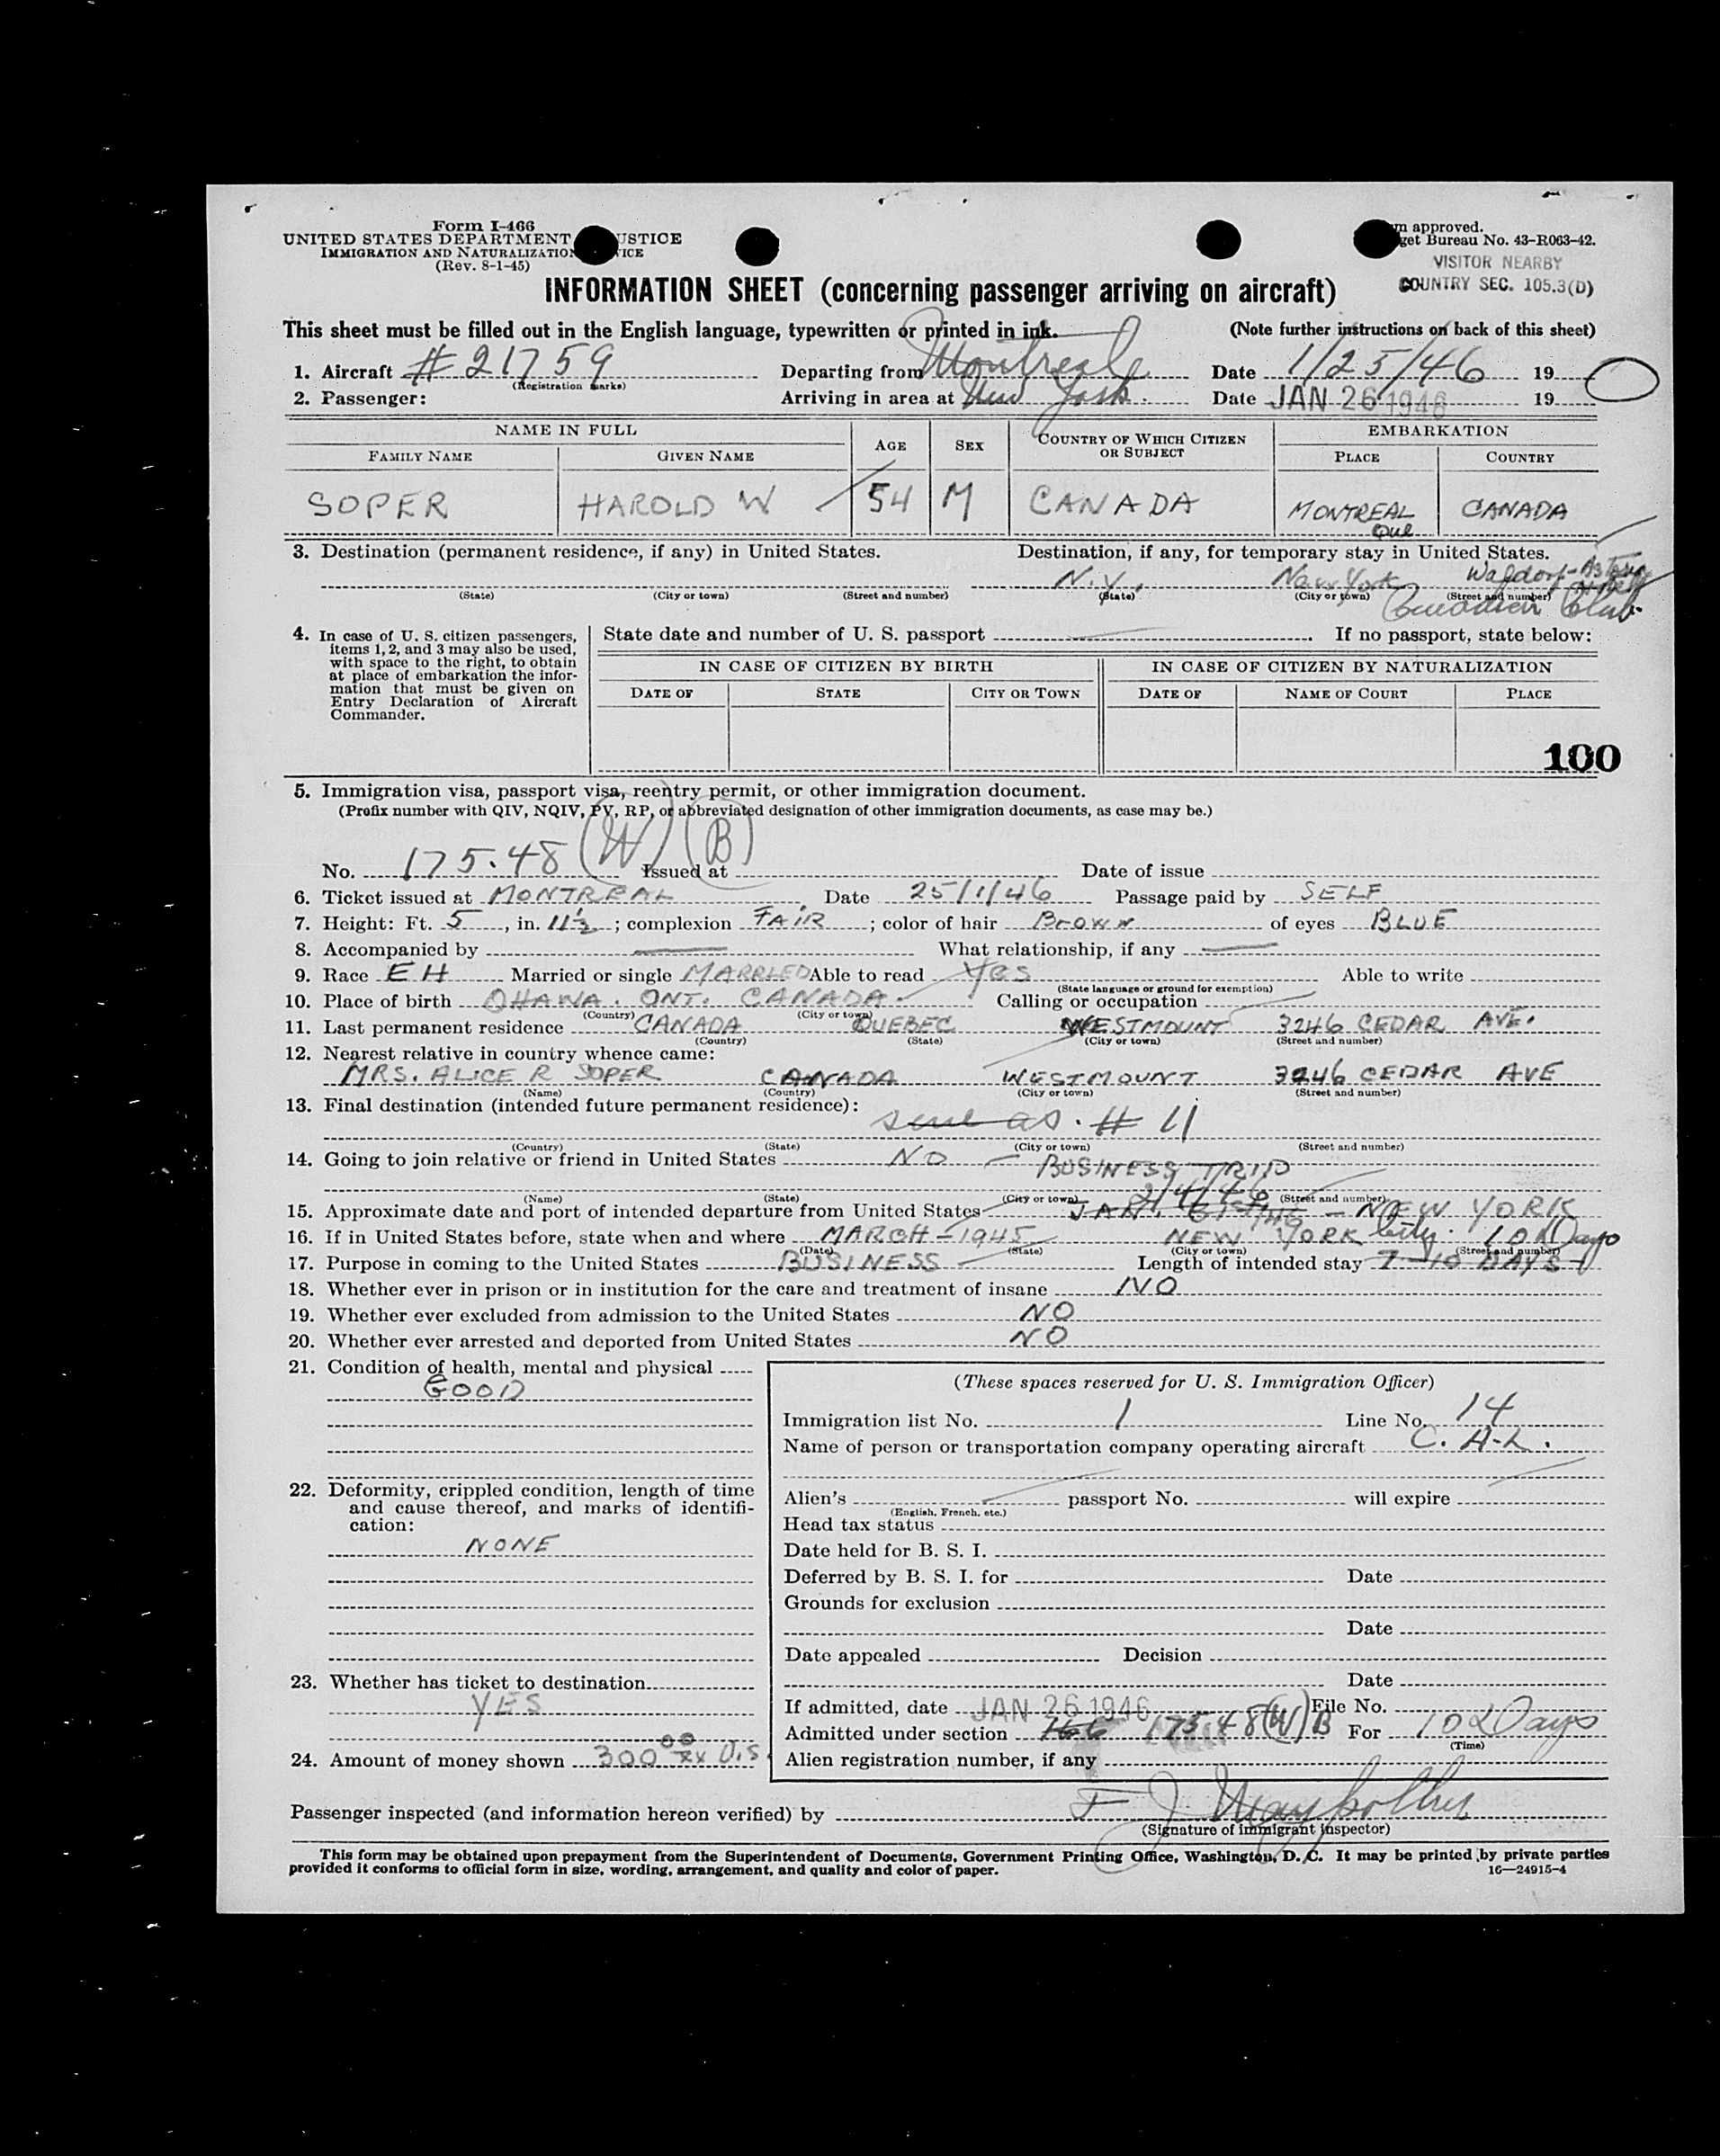 Form I-466
UNITED STATES DEPARTMENT USTICE
IMMIGRATION AND NATURALIZATION VICE
(Rev. 8-1-45)
m approved.
get Bureau No. 43-R063-42.
VISITOR NEARBY
COUNTRY SEC. 105.3(D)
INFORMATION SHEET (concerning passenger arriving on aircraft)
This sheet must be filled out in the English language, typewritten or printed in ink. (Note further instructions on back of this sheet)
1. Aircraft # 21759 (Registration marks) Departing from Montreal Date 1/25/46 19
2. Passenger: Arriving in area at New York. Date JAN 26 1946 19
NAME IN FULL AGE SEX COUNTRY OF WHICH CITIZEN OR SUBJECT EMBARKATION
FAMILY NAME GIVEN NAME PLACE COUNTRY
SOPER HAROLD W 54 M CANADA MONTREAL Que CANADA
3. Destination (permanent residence, if any) in United States. Destination, if any, for temporary stay in United States.
N.Y. New York Waldorf-Astoria Hotel
(State) (City or town) (Street and number) (State) (City or town) (Street and number)
Canadian Club.
4. In case of U. S. citizen passengers, items 1, 2, and 3 may also be used, with space to the right, to obtain at place of embarkation the information that must be given on Entry Declaration of Aircraft Commander.
State date and number of U. S. passport If no passport, state below:
IN CASE OF CITIZEN BY BIRTH IN CASE OF CITIZEN BY NATURALIZATION
DATE OF STATE CITY OR TOWN DATE OF NAME OF COURT PLACE
100
5. Immigration visa, passport visa, reentry permit, or other immigration document.
(Prefix number with QIV, NQIV, PV, RP, or abbreviated designation of other immigration documents, as case may be.)
No. 175.48 (W) (B) Issued at Date of issue
6. Ticket issued at MONTREAL Date 25/1/46 Passage paid by SELF
7. Height: Ft. 5, in. 11½; complexion FAIR; color of hair Brown of eyes BLUE
8. Accompanied by What relationship, if any
9. Race EH Married or single MARRIED Able to read Yes Able to write
(State language or ground for exemption)
10. Place of birth OTTAWA. ONT. CANADA. Calling or occupation
(Country) (City or town)
11. Last permanent residence CANADA QUEBEC WESTMOUNT 3246 CEDAR AVE.
(Country) (State) (City or town) (Street and number)
12. Nearest relative in country whence came:
MRS. ALICE R SOPER CANADA WESTMOUNT 3246 CEDAR AVE
(Name) (Country) (City or town) (Street and number)
13. Final destination (intended future permanent residence):
same as. # 11
(Country) (State) (City or town) (Street and number)
14. Going to join relative or friend in United States NO - BUSINESS TRIP
(Name) (State) (City or town) (Street and number)
2/4/46
15. Approximate date and port of intended departure from United States JAN. 31st/46 - NEW YORK
16. If in United States before, state when and where MARCH - 1945 NEW YORK City. 10 Days
(Date) (State) (City or town) (Street and number)
17. Purpose in coming to the United States BUSINESS Length of intended stay 7-10 DAYS
18. Whether ever in prison or in institution for the care and treatment of insane NO
19. Whether ever excluded from admission to the United States NO
20. Whether ever arrested and deported from United States NO
21. Condition of health, mental and physical
GOOD
22. Deformity, crippled condition, length of time and cause thereof, and marks of identification:
NONE
23. Whether has ticket to destination
YES
24. Amount of money shown 300 00/xx U.S.
(These spaces reserved for U. S. Immigration Officer)
Immigration list No. 1 Line No. 14
Name of person or transportation company operating aircraft C.A.L.
Alien's passport No. will expire
(English, French, etc.)
Head tax status
Date held for B. S. I.
Deferred by B. S. I. for Date
Grounds for exclusion
Date
Date appealed Decision
Date
If admitted, date JAN 26 1946 File No.
Admitted under section 166 175.48(W)B For 10 Days
(Time)
Alien registration number, if any
Passenger inspected (and information hereon verified) by F J
(Signature of immigrant inspector)
This form may be obtained upon prepayment from the Superintendent of Documents, Government Printing Office, Washington, D. C. It may be printed by private parties
provided it conforms to official form in size, wording, arrangement, and quality and color of paper. 16—24915-4